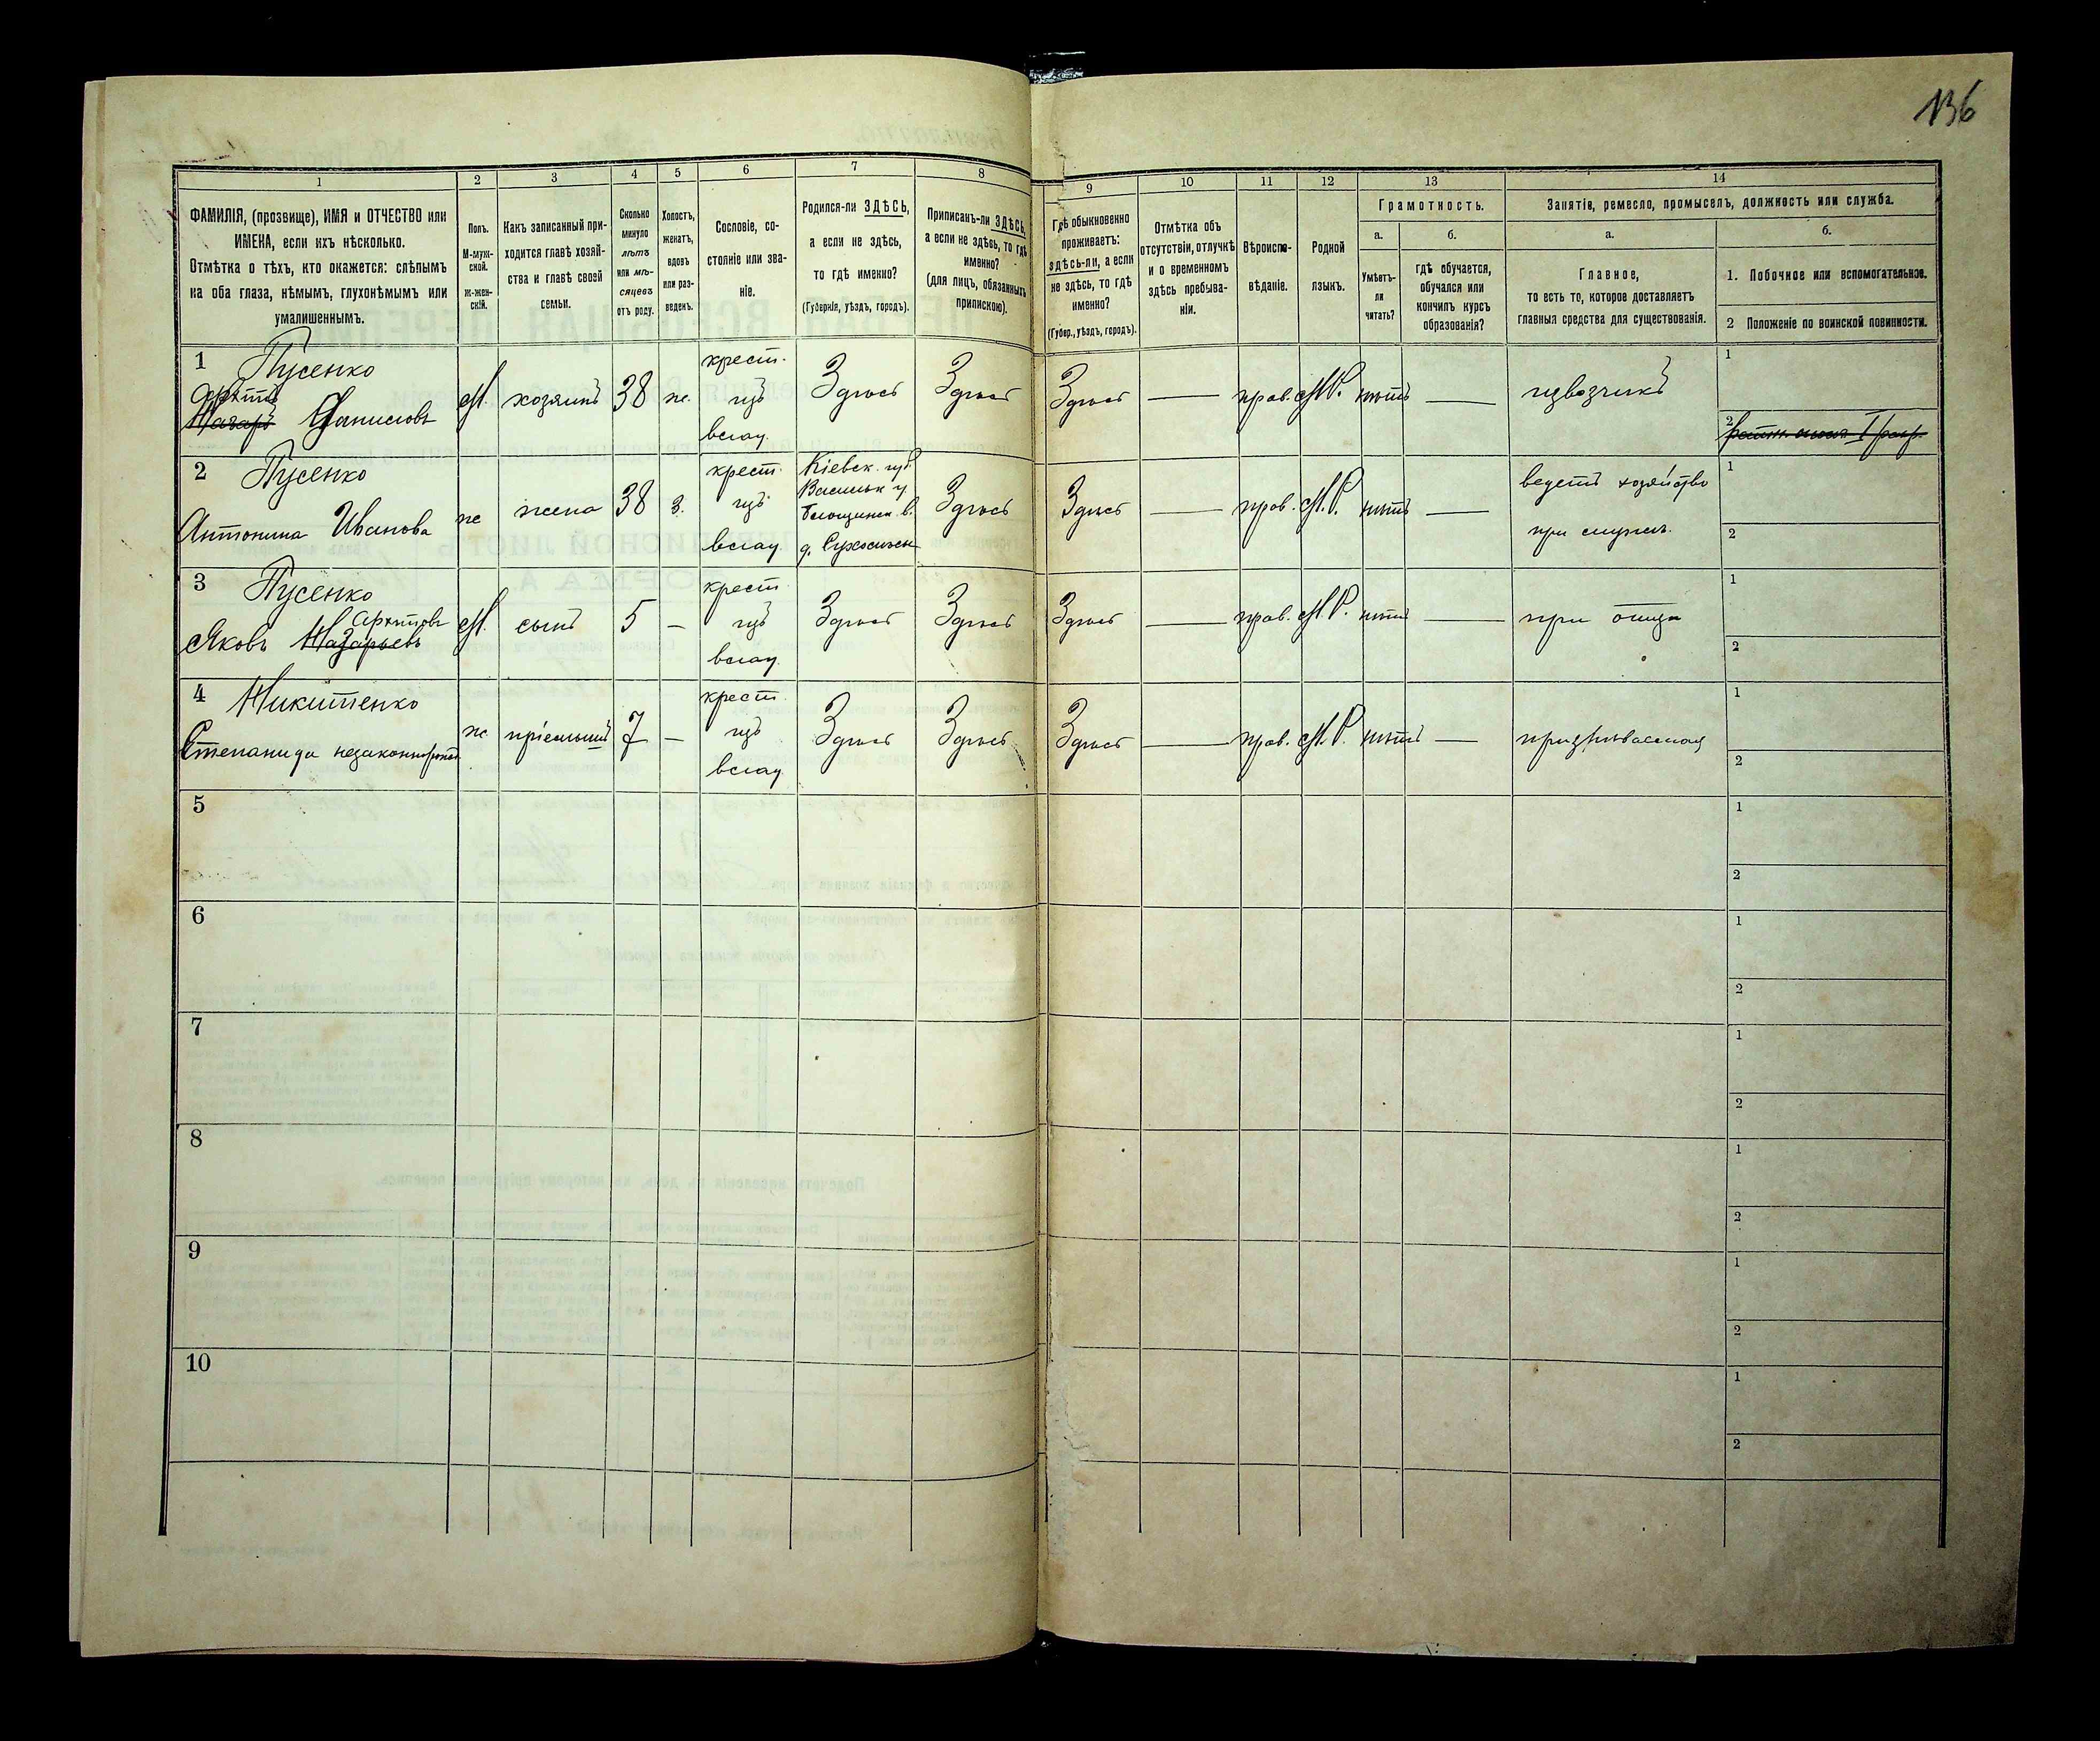 136
1
2
3
4
5
6
7
8
9
10
11
12
13
14
ФАМИЛІЯ, (прозвище), ИМЯ и ОТЧЕСТВО или
ИМЕНА, если ихъ нѣсколько.
Отмѣтка о тѣхъ, кто окажется: слѣпымъ
на оба глаза, нѣмымъ, глухонѣмымъ или
умалишеннымъ.
Полъ.
М-муж-
ской.
Ж-жен-
скій.
Какъ записанный при-
ходится главѣ хозяй-
ства и главѣ своей
семьи.
Сколько
минуло
лѣтъ
или мѣ-
сяцевъ
отъ роду.
Холостъ,
женатъ,
вдовъ
или раз-
веденъ.
Сословіе, со-
стояніе или зва-
ніе.
Родился-ли ЗДѢСЬ,
а если не здѣсь,
то гдѣ именно?
(Губернія, уѣздъ, городъ).
Приписанъ-ли ЗДѢСЬ,
а если не здѣсь, то гдѣ
именно?
(для лицъ, обязанныхъ
припискою).
Гдѣ обыкновенно
проживаетъ:
здѣсь-ли, а если
не здѣсь, то гдѣ
именно?
(Губер., уѣздъ, городъ).
Отмѣтка объ
отсутствіи, отлучкѣ
и о временномъ
здѣсь пребыва-
ніи.
Вѣроиспо-
вѣданіе.
Родной
языкъ.
Грамотность.
а.
Умѣетъ-
ли
читать?
б.
гдѣ обучается,
обучался или
кончилъ курсъ
образованія?
Занятіе, ремесло, промыселъ, должность или служба.
а.
Главное,
то есть то, которое доставляетъ
главныя средства для существованія.
б.
1. Побочное или вспомогательное.
2 Положеніе по воинской повинности.
1 Пусенко
Артемъ
Назаръ Даниловъ
М. хозяинъ 38 ж.
крест.
изъ
влад.
Здѣсь Здѣсь Здѣсь — прав. М.Р. нѣтъ — извозчикъ
1
2 ратн. опол. I разр.
2 Пусенко
Антонина Иванова
ж жена 38 з.
крест.
изъ
влад.
Кіевск. губ.
Васильк у.
д.
Здѣсь Здѣсь — прав. М.Р. нѣтъ —
ведетъ хозяйство
при мужѣ.
1
2
3 Пусенко
Артемовъ
Яковъ Назарьевъ
М. сынъ 5 —
крест
изъ
влад.
Здѣсь Здѣсь Здѣсь — прав. М.Р. нѣтъ — при отцѣ
1
2
4 Никитенко
Степанида незаконнорожд
ж пріемышъ 7 —
крест.
изъ
влад
Здѣсь Здѣсь Здѣсь — прав. М.Р. нѣтъ — призрѣваемая
1
2
5
1
2
6
1
2
7
1
2
8
1
2
9
1
2
10
1
2